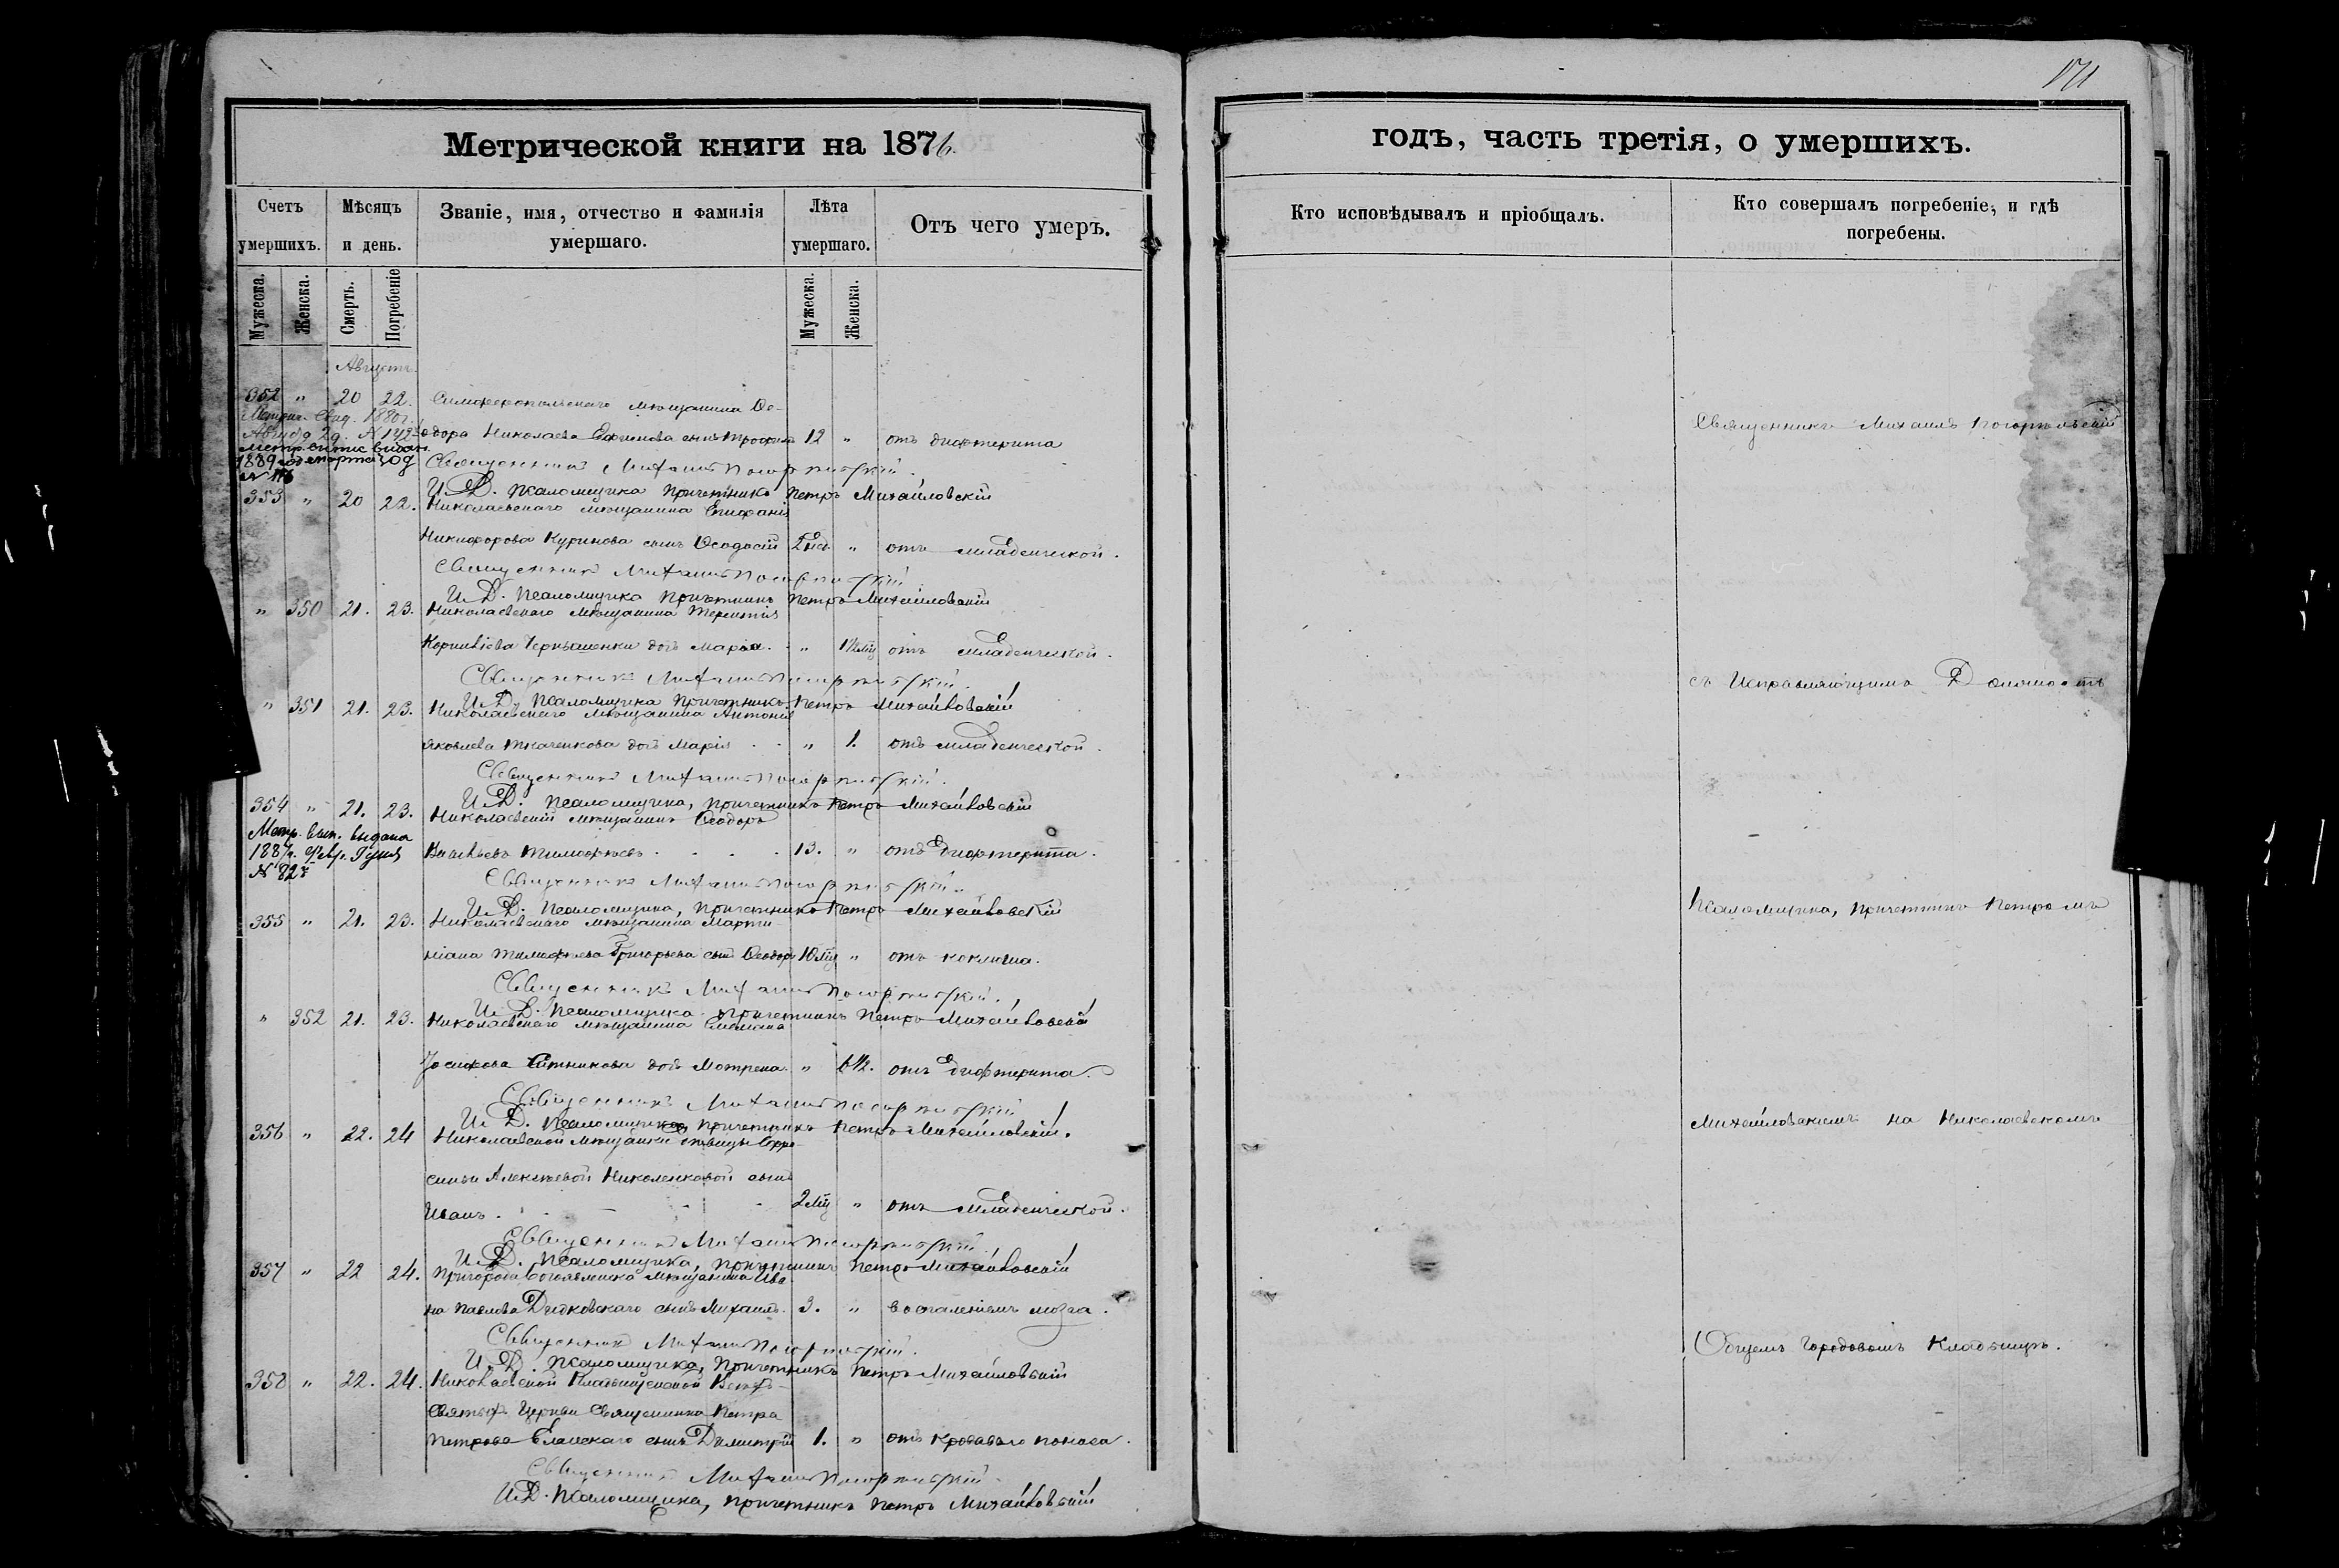 171
Метрической книги на 1876
годъ, часть третія, о умершихъ.
Счетъ умершихъ.
Мѣсяцъ и день.
Званіе, имя, отчество и фамилія умершаго.
Лѣта умершаго.
Отъ чего умеръ.
Кто исповѣдывалъ и пріобщалъ.
Кто совершалъ погребеніе, и гдѣ погребены.
Мужеска.
Женска.
Смерть.
Погребеніе
Мужеска.
Женска.
Августъ
352 " 20 22. Симферопольскаго мѣщанина Ѳе-
Метрич. Свид. 1880 г.
одора Николаева сынъ Трофимъ 12 " отъ дифтерита
1889
Священникъ Михаилъ Погорѣльскій
И. Д. Псаломщика Причетникъ Петръ Михайловскій
353 " 20 22. Николаевскаго мѣщанина Епифанія
Никифорова Куринова сынъ Ѳеодосій 2 нед. " отъ младенческой.
Священникъ Михаилъ Погорѣльскій
И. Д. Псаломщика Причетникъ Петръ Михайловскій
" 350 21. 23. Николаевскаго мѣщанина Терентія
Корнилієва Чернышенки дочь Марія. " отъ младенческой.
Священникъ Михаилъ Погорѣльскій.
И. Д. Псаломщика Причетникъ Петръ Михайловскій
" 351 21. 23. Николаевскаго мѣщанина Антонія
Яковлева Ткаченкова дочь Марія " 1. отъ младенческой.
Священникъ Михаилъ Погорѣльскій.
И. Д. Псаломщика, причетникъ Петръ Михайловскій
354 " 21. 23. Николаевскій мѣщанинъ Ѳеодоръ
Метр. вып. выдана
1887 г.
№ 82
Васильевъ Тимофѣевъ 13. " отъ дифтерита.
Священникъ Михаилъ Погорѣльскій.
И. Д. Псаломщика, причетникъ Петръ Михайловскій
355 " 21. 23. Николаевскаго мѣщанина Марти-
ніана Тимофѣева Григорьева сынъ Ѳеодоръ 10 мѣц " отъ коклюша.
Священникъ Михаилъ Погорѣльскій.
И. Д. Псаломщика причетникъ Петръ Михайловскій
" 352 21. 23. Николаевскаго мѣщанина Симеона
Іосифова Ситникова дочь Мотрена " 6 1/2. отъ дифтерита.
Священникъ Михаилъ Погорѣльскій
И. Д. Псаломщика, причетникъ Петръ Михайловскій.
356 " 22. 24 Николаевской мѣщанки дѣвицы Евфро-
синіи Алексѣевой Николенковой сынъ
Иванъ. 2 мѣц " отъ младенческой.
Священникъ Михаилъ Погорѣльскій
И. Д. Псаломщика, причетникъ Петръ Михайловскій
357 " 22 24. Пригорода Богоявленска мѣщанина Ива-
на Павлова Дидковскаго сынъ Михаилъ. 3. " воспаленіемъ мозга.
Священникъ Михаилъ Погорѣльскій.
И. Д. Псаломщика, Причетникъ Петръ Михайловскій
358 " 22. 24. Николаевской Кладбищенской Всѣхъ-
Святыхъ Церкви Священника Петра
Петрова Еланскаго сынъ Димитрій 1. " отъ кроваваго поноса.
Священникъ Михаилъ Погорѣльскій
И. Д. Псаломщика, причетникъ Петръ Михайловскій
Священникъ Михаилъ Погорѣльскій
съ Исправляющимъ Должность
Псаломщика, Причетникъ Петромъ
Михайловскимъ на Николаевскомъ
Общемъ Городовомъ Кладбищѣ.